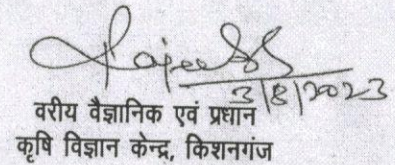 3/8/2023
वरीय वैज्ञानिक एवं प्रधान
कृषि विज्ञान केन्द्र, किशनगंज